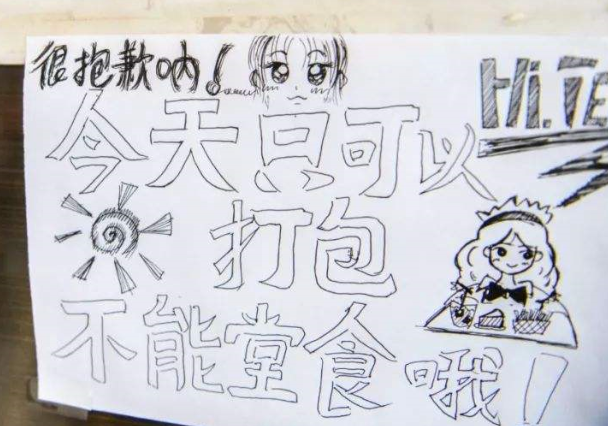 很抱歉呐!
Hi.Te
今天只可以
打包
不能堂食哦!